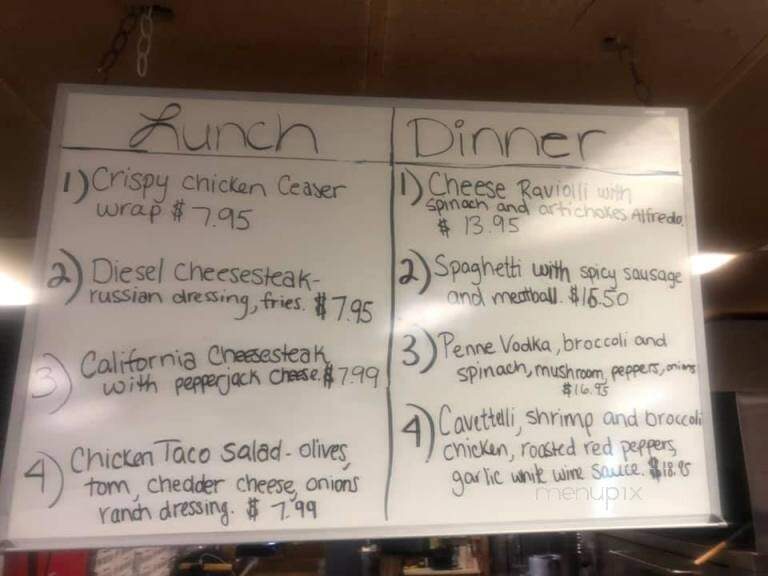 Lunch
1) Crispy chicken Ceaser
wrap $ 7.95
2) Diesel Cheesesteak-
russian dressing, fries. $7.95
3) California Cheesesteak
with pepperjack cheese. $7.99
4) Chicken Taco Salad - olives,
tom, chedder cheese, onions
ranch dressing. $ 7.99
Dinner
1) Cheese Raviolli with
spinach and artichokes Alfredo.
$ 13.95
2) Spaghetti with spicy sausage
and meatball. $16.50
3) Penne Vodka, broccoli and
spinach, mushroom, peppers, onions
$16.95
4) Cavettelli, shrimp and broccoli
chicken, roasted red peppers,
garlic white wine sauce. $18.95
menupix